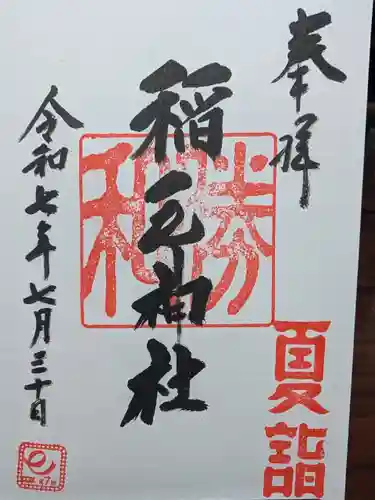 奉拝
夏詣
勝
稲毛神社
和
令和七年七月三十日